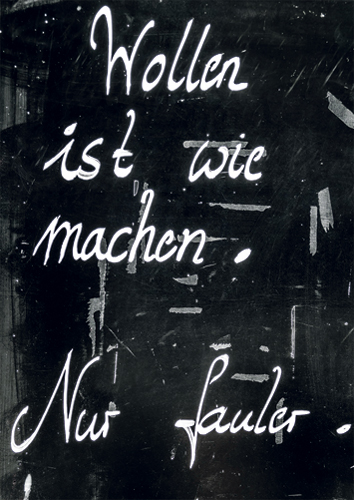 Wollen
ist wie
machen.
Nur fauler.